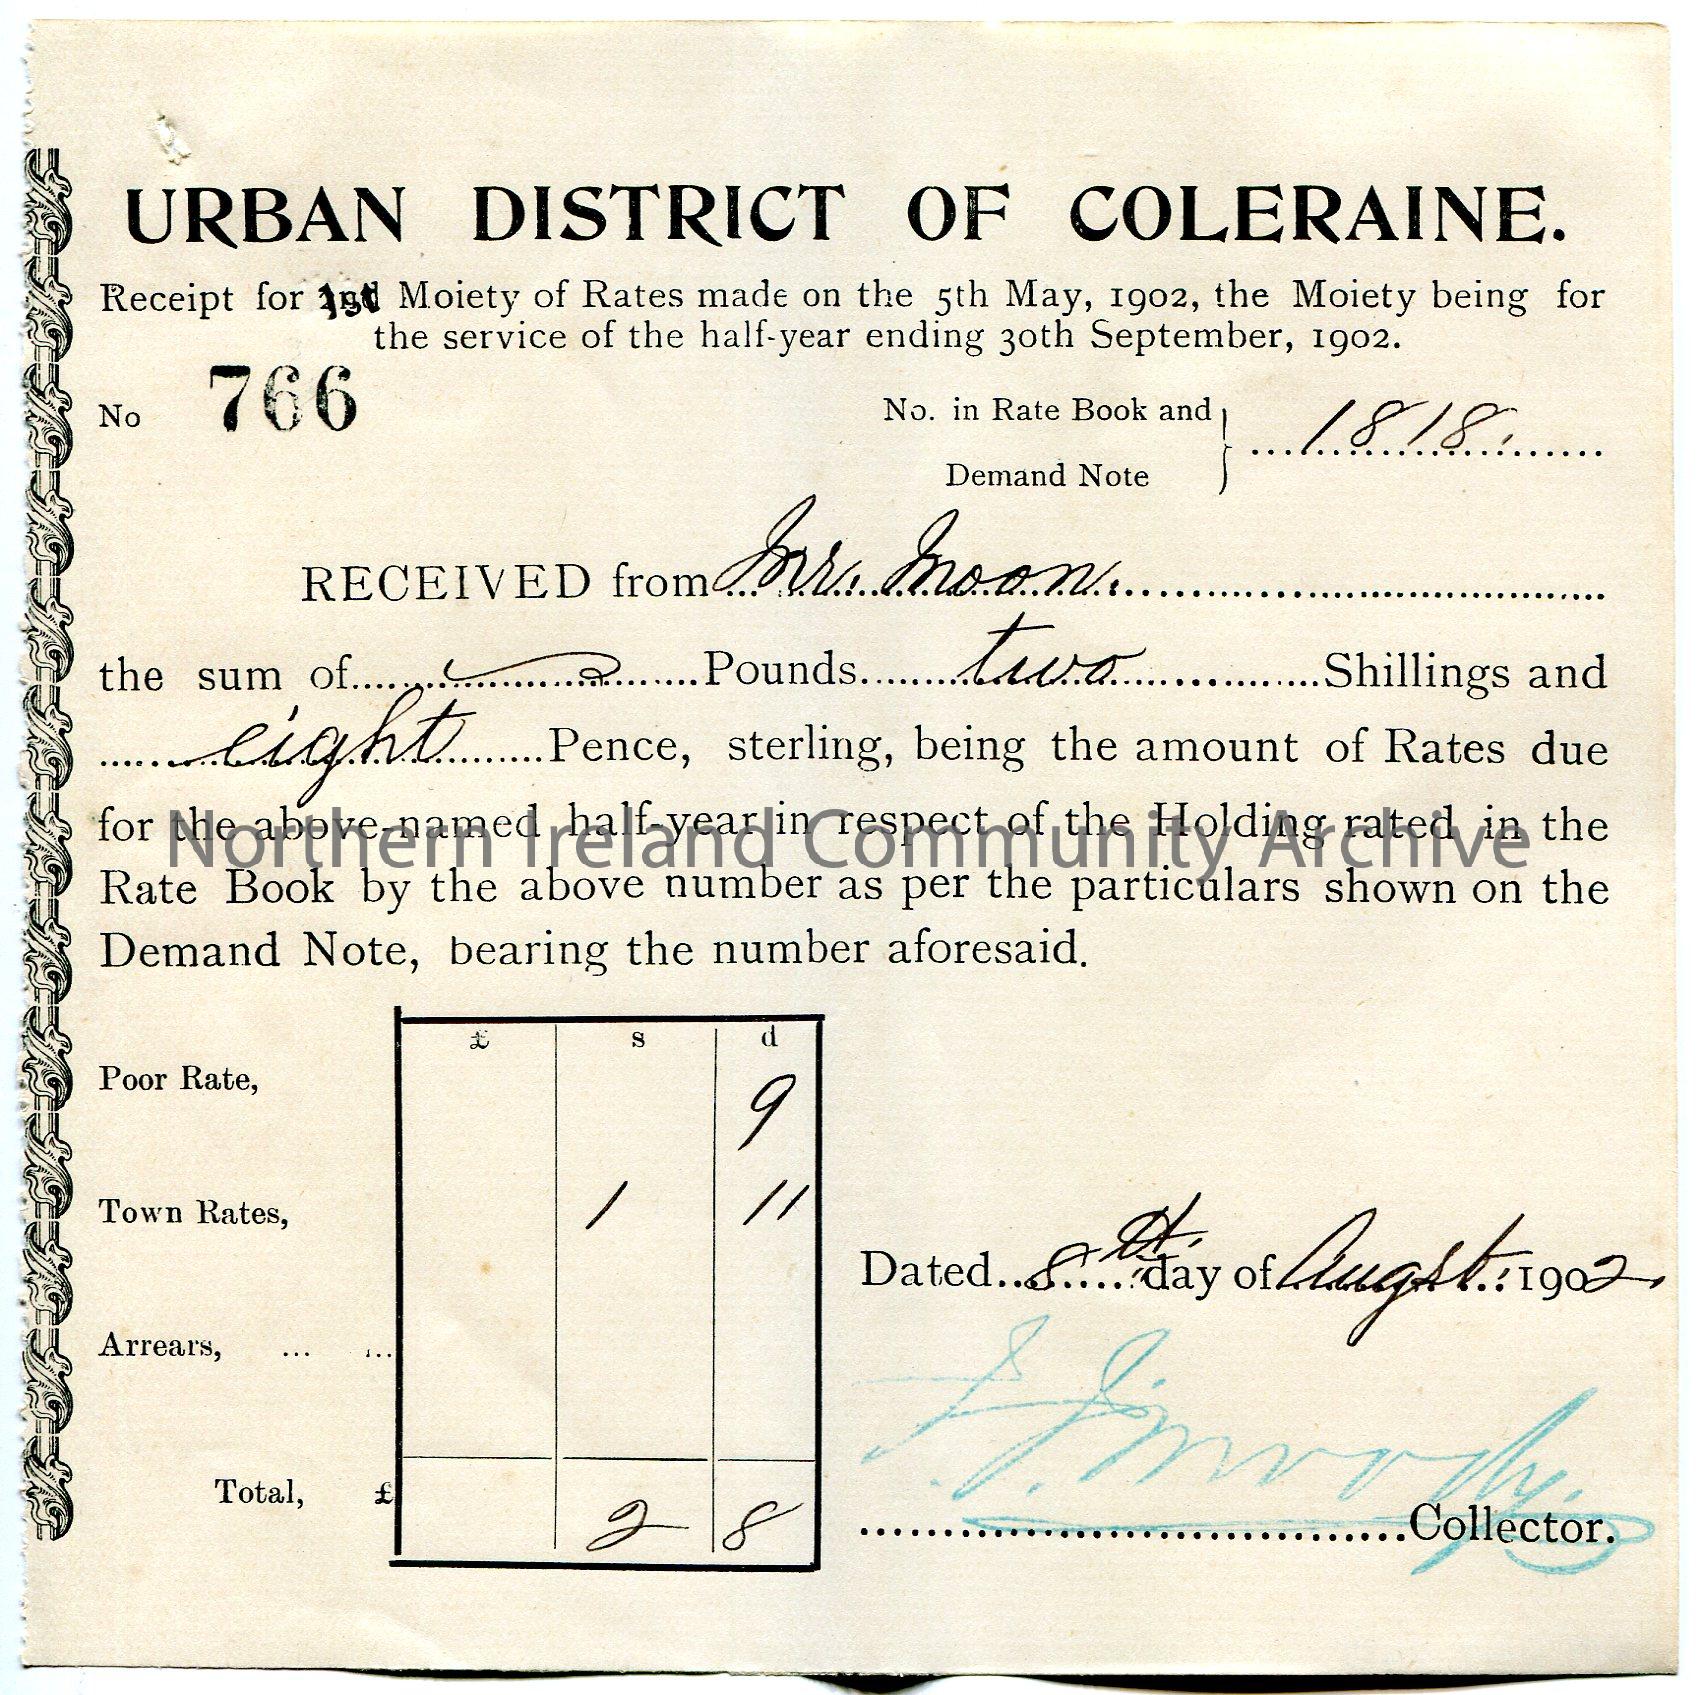 URBAN DISTRICT OF COLERAINE.
Receipt for 1st Moiety of Rates made on the 5th May, 1902, the Moiety being for
the service of the half-year ending 30th September, 1902.
No 766
No. in Rate Book and
Demand Note } 1818.
RECEIVED from Mr. Moon.
the sum of Pounds two Shillings and
eight Pence, sterling, being the amount of Rates due
for the above-named half-year in respect of the Holding rated in the
Northern Ireland Community Archive
Rate Book by the above number as per the particulars shown on the
Demand Note, bearing the number aforesaid.
£ s d
Poor Rate, 9
Town Rates, 1 11
Arrears, ... ...
Total, £ 2 8
Dated 8th day of Augst. 1902.
Collector.